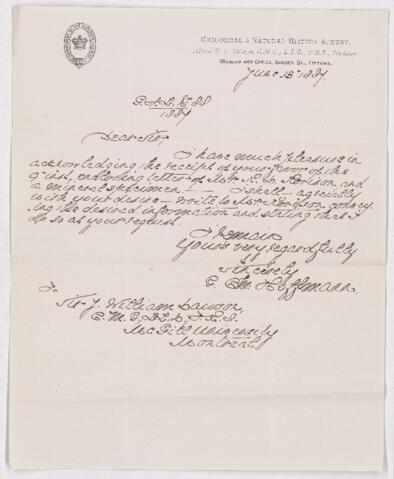 GEOLOGICAL & NATURAL HISTORY SURVEY,
MUSEUM AND OFFICE, SUSSEX ST., OTTAWA.
June 13th 1887
1887
Dear Sir,
I have much pleasure in
acknowledging the receipt of your favor of the
inst, enclosing letter of Mr. and
a mineral specimen. — I shall — agreeably
with your desire — write to Mr. convey-
ing the desired information and stating that I
do so at your request.
I remain
Yours very regardfully
Sincerely
G. Chr. Hoffmann.
To
Sir J. William Dawson,
C.M.G. LL.D. F.R.S.
McGill University
Montreal